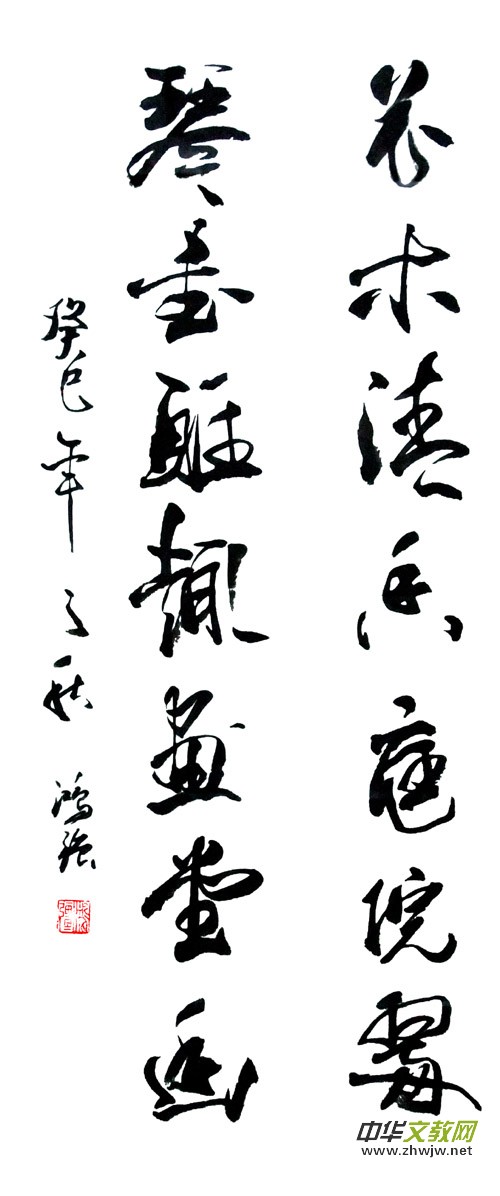 花木清香庭院翠
琴書雅趣畫堂幽
癸巳年之秋 鴻強
中华文教网
www.zhwjw.net